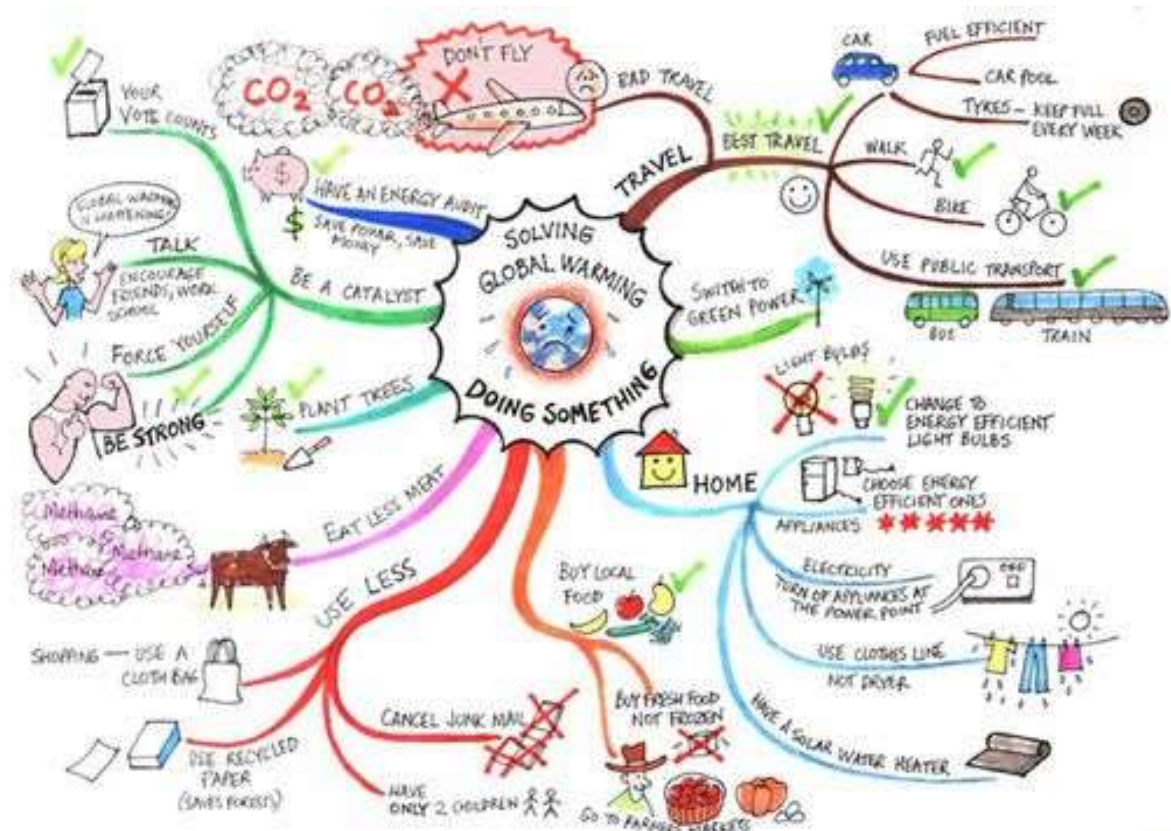 SOLVING
GLOBAL WARMING
DOING SOMETHING
TRAVEL
BAD TRAVEL
DON'T FLY
CO2
CO2
BEST TRAVEL
CAR
FUEL EFFICIENT
CAR POOL
TYRES – KEEP FULL
EVERY WEEK
WALK
BIKE
USE PUBLIC TRANSPORT
BUS
TRAIN
SWITCH TO
GREEN POWER
HOME
LIGHT BULBS
CHANGE TO
ENERGY EFFICIENT
LIGHT BULBS
CHOOSE ENERGY
EFFICIENT ONES
APPLIANCES
ELECTRICITY
TURN OF APPLIANCES AT
THE POWER POINT
OFF
USE CLOTHES LINE
NOT DRYER
HAVE A SOLAR WATER HEATER
BUY LOCAL
FOOD
BUY FRESH FOOD
NOT FROZEN
GO TO FARMERS MARKETS
USE LESS
SHOPPING — USE A
CLOTH BAG
USE RECYCLED
PAPER
(SAVES FORESTS)
CANCEL JUNK MAIL
HAVE
ONLY 2 CHILDREN
EAT LESS MEAT
Methane
Methane
Methane
PLANT TREES
BE A CATALYST
YOUR
VOTE COUNTS
TALK
ENCOURAGE
FRIENDS, WORK
SCHOOL
GLOBAL WARMING
IS HAPPENING!
FORCE YOURSELF
BE STRONG
HAVE AN ENERGY AUDIT
SAVE POWER, SAVE
MONEY
$
$